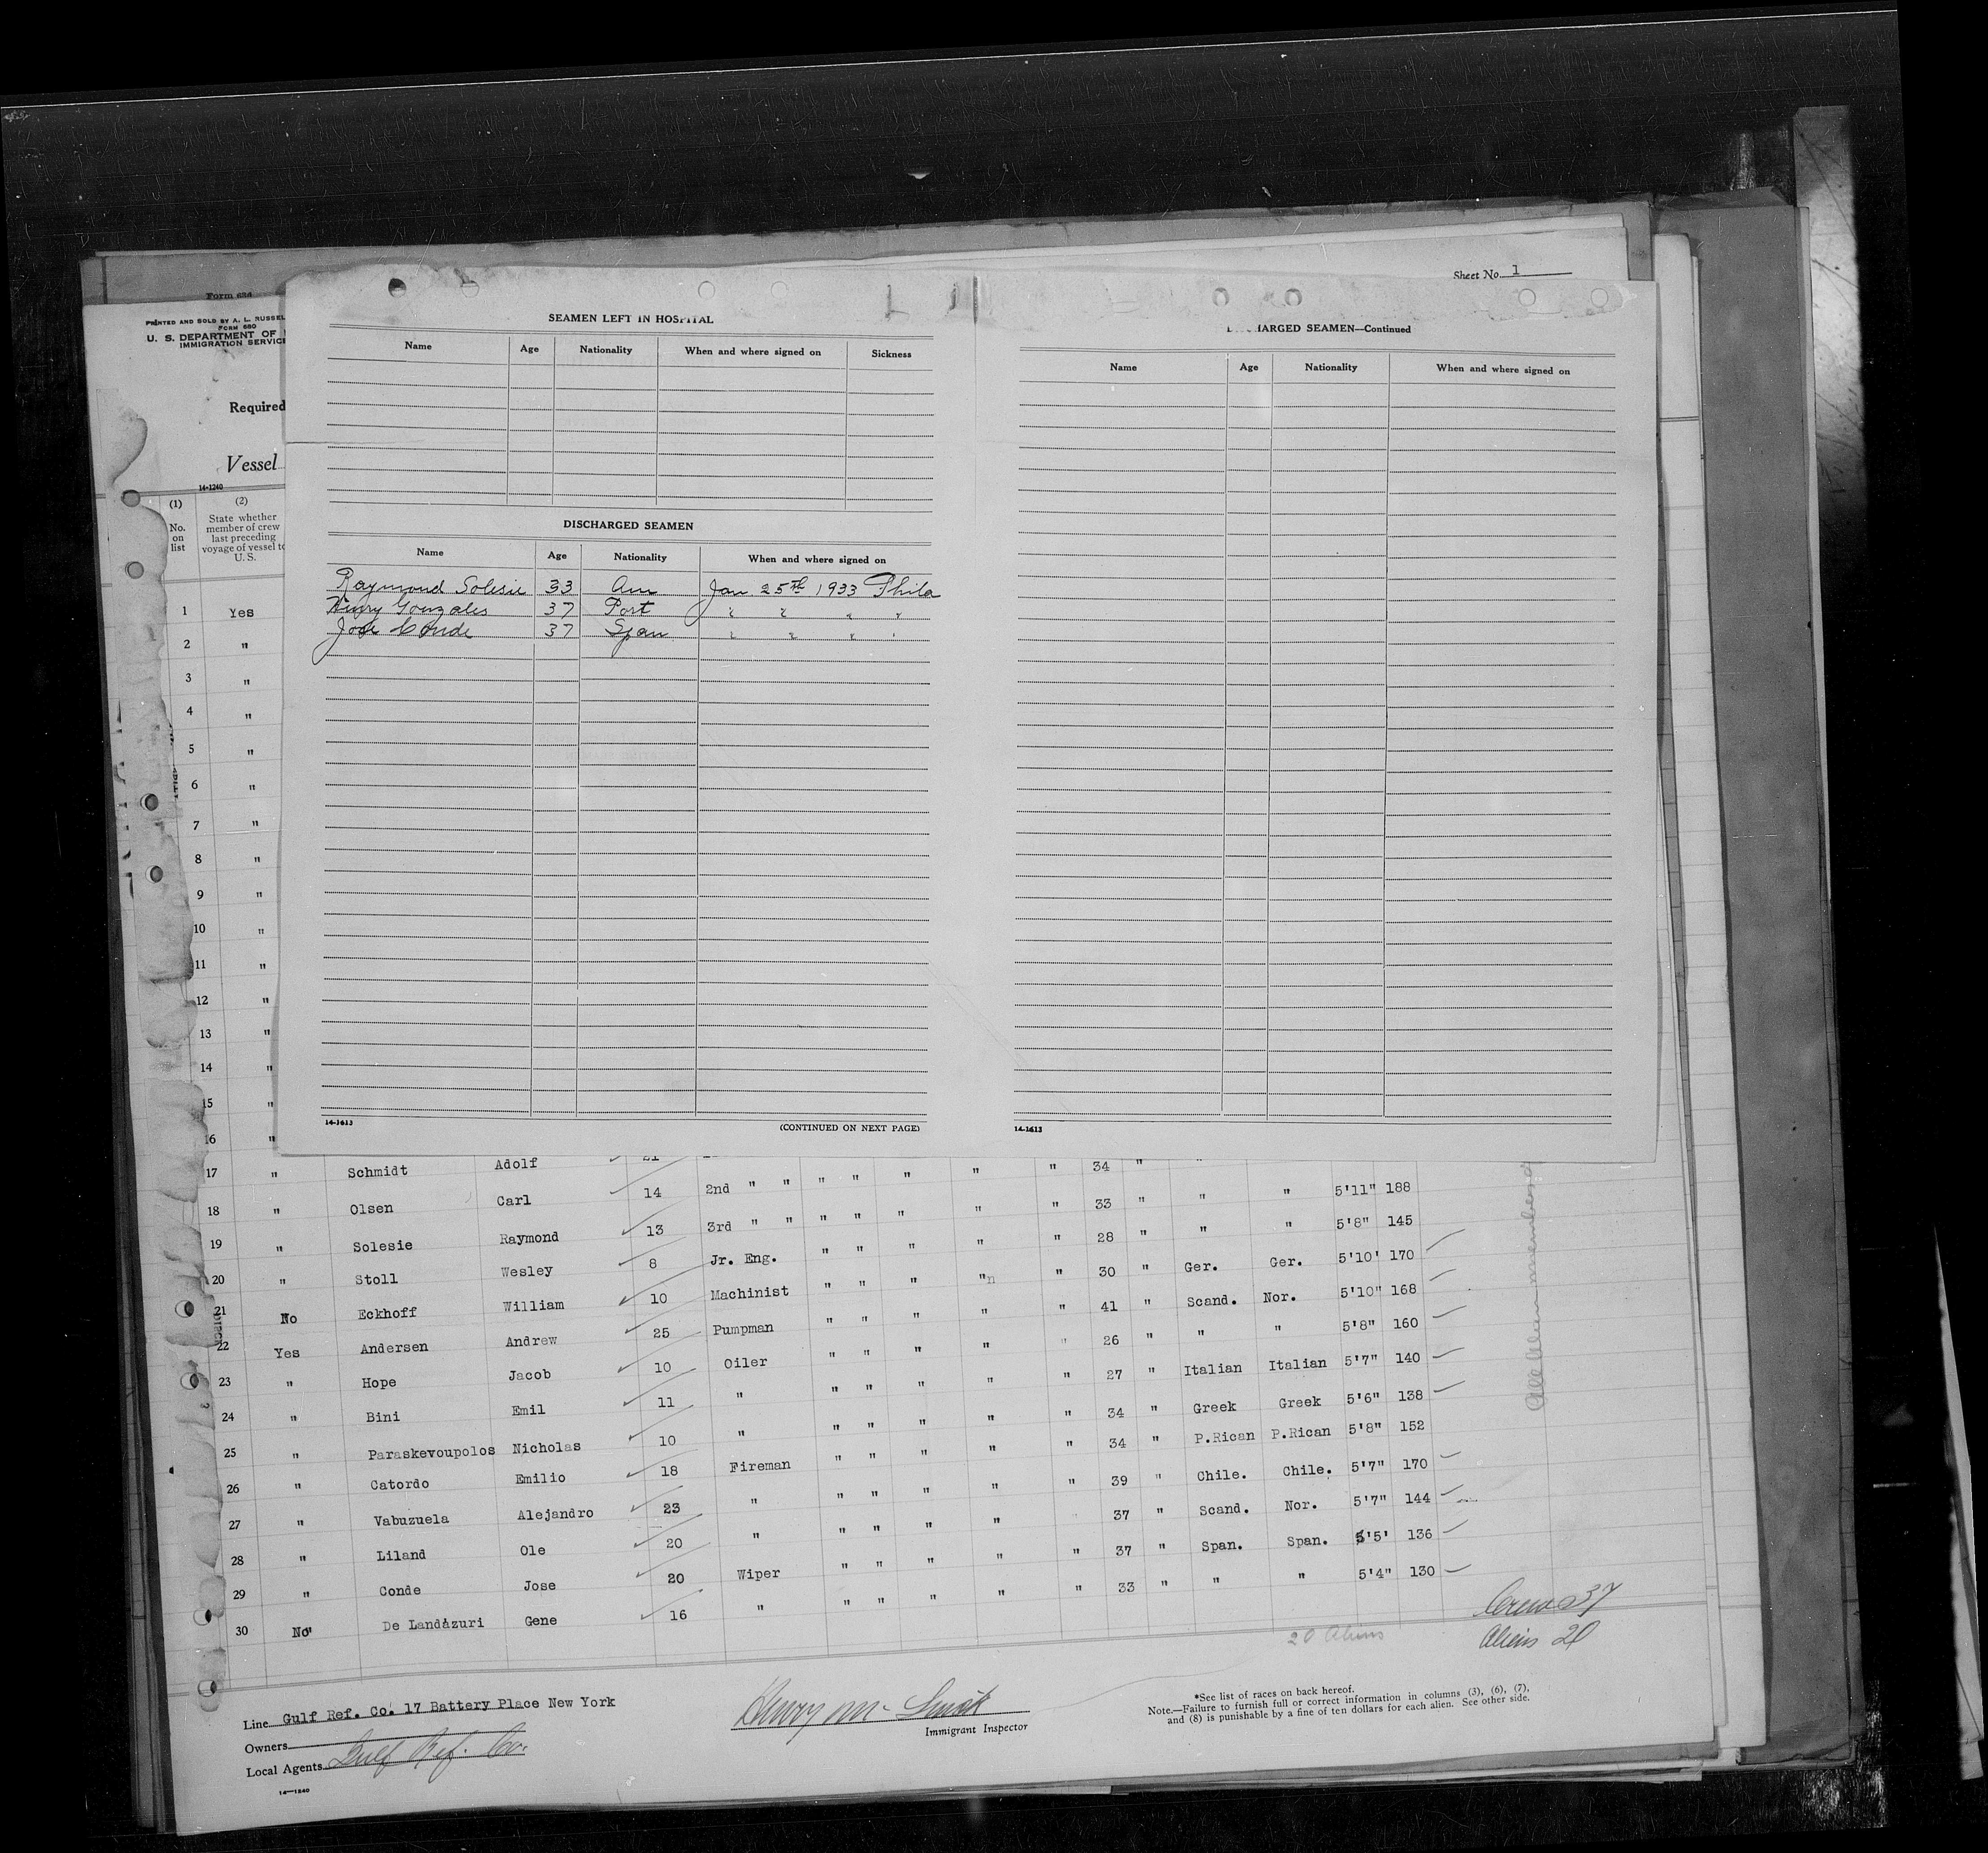 Sheet No. 1
Form 634
PRINTED AND SOLD BY A. L. RUSSEL
FORM 680
U. S. DEPARTMENT OF
IMMIGRATION SERVICE
Required
Vessel
14-1240
(1) (2)
No. on list
State whether member of crew last preceding voyage of vessel to U. S.
SEAMEN LEFT IN HOSPITAL
Name Age Nationality When and where signed on Sickness
DISCHARGED SEAMEN
Name Age Nationality When and where signed on
Raymond Solesie 33 Am Jan 25th 1933 Phila
Henry Gonzales 37 Port " " " "
Jose Conde 37 Span " " " "
14-1613
(CONTINUED ON NEXT PAGE)
ARGED SEAMEN—Continued
Name Age Nationality When and where signed on
14-1613
1 Yes
2 "
3 "
4 "
5 "
6 "
7 "
8 "
9 "
10 "
11 "
12 "
13 "
14 "
15 "
16 "
17 " Schmidt Adolf 21 " " " 34 " "
18 " Olsen Carl 14 2nd " " " " " " " 33 " " " 5'11" 188
19 " Solesie Raymond 13 3rd " " " " " " " 28 " " " 5'8" 145
20 " Stoll Wesley 8 Jr. Eng. " " " " " 30 " Ger. Ger. 5'10' 170
21 No Eckhoff William 10 Machinist " " " "n " 41 " Scand. Nor. 5'10" 168
22 Yes Andersen Andrew 25 Pumpman " " " " " 26 " " " 5'8" 160
23 " Hope Jacob 10 Oiler " " " " " 27 " Italian Italian 5'7" 140
24 " Bini Emil 11 " " " " " " 34 " Greek Greek 5'6" 138
25 " Paraskevoupolos Nicholas 10 " " " " " " 34 " P.Rican P.Rican 5'8" 152
26 " Catordo Emilio 18 Fireman " " " " " 39 " Chile. Chile. 5'7" 170
27 " Vabuzuela Alejandro 23 " " " " " 37 " Scand. Nor. 5'7" 144
28 " Liland Ole 20 " " " " " " 37 " Span. Span. 5'5' 136
29 " Conde Jose 20 Wiper " " " " " 33 " " " 5'4" 130
30 No" De Landázuri Gene 16 " " " "
20 Aliens
Crew 37
Aliens 20
Line Gulf Ref. Co. 17 Battery Place New York
Owners
Local Agents Gulf Ref. Co.
14—1240
Immigrant Inspector
*See list of races on back hereof.
Note.—Failure to furnish full or correct information in columns (3), (6), (7),
and (8) is punishable by a fine of ten dollars for each alien. See other side.